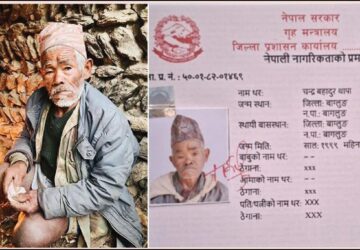 नेपाल सरकार
गृह मन्त्रालय
जिल्ला प्रशासन कार्यालय
नेपाली नागरिकताको प्रमा
प्र. नं. :
नाम थर: चन्द्र बहादुर थापा
जन्म स्थान: जिल्ला: बाग्लुङ
न.पा.: बागलुङ
स्थायी बासस्थान: जिल्ला: बाग्लुङ
न.पा.: बागलुङ
जन्म मिति: साल: १९९५ महिन
बाबुको नाम थर: --
ठेगाना: xxx
आमाको नाम थर: --
ठेगाना: xxx
पति/पत्नीको नाम थर: XXX
ठेगाना: XXX